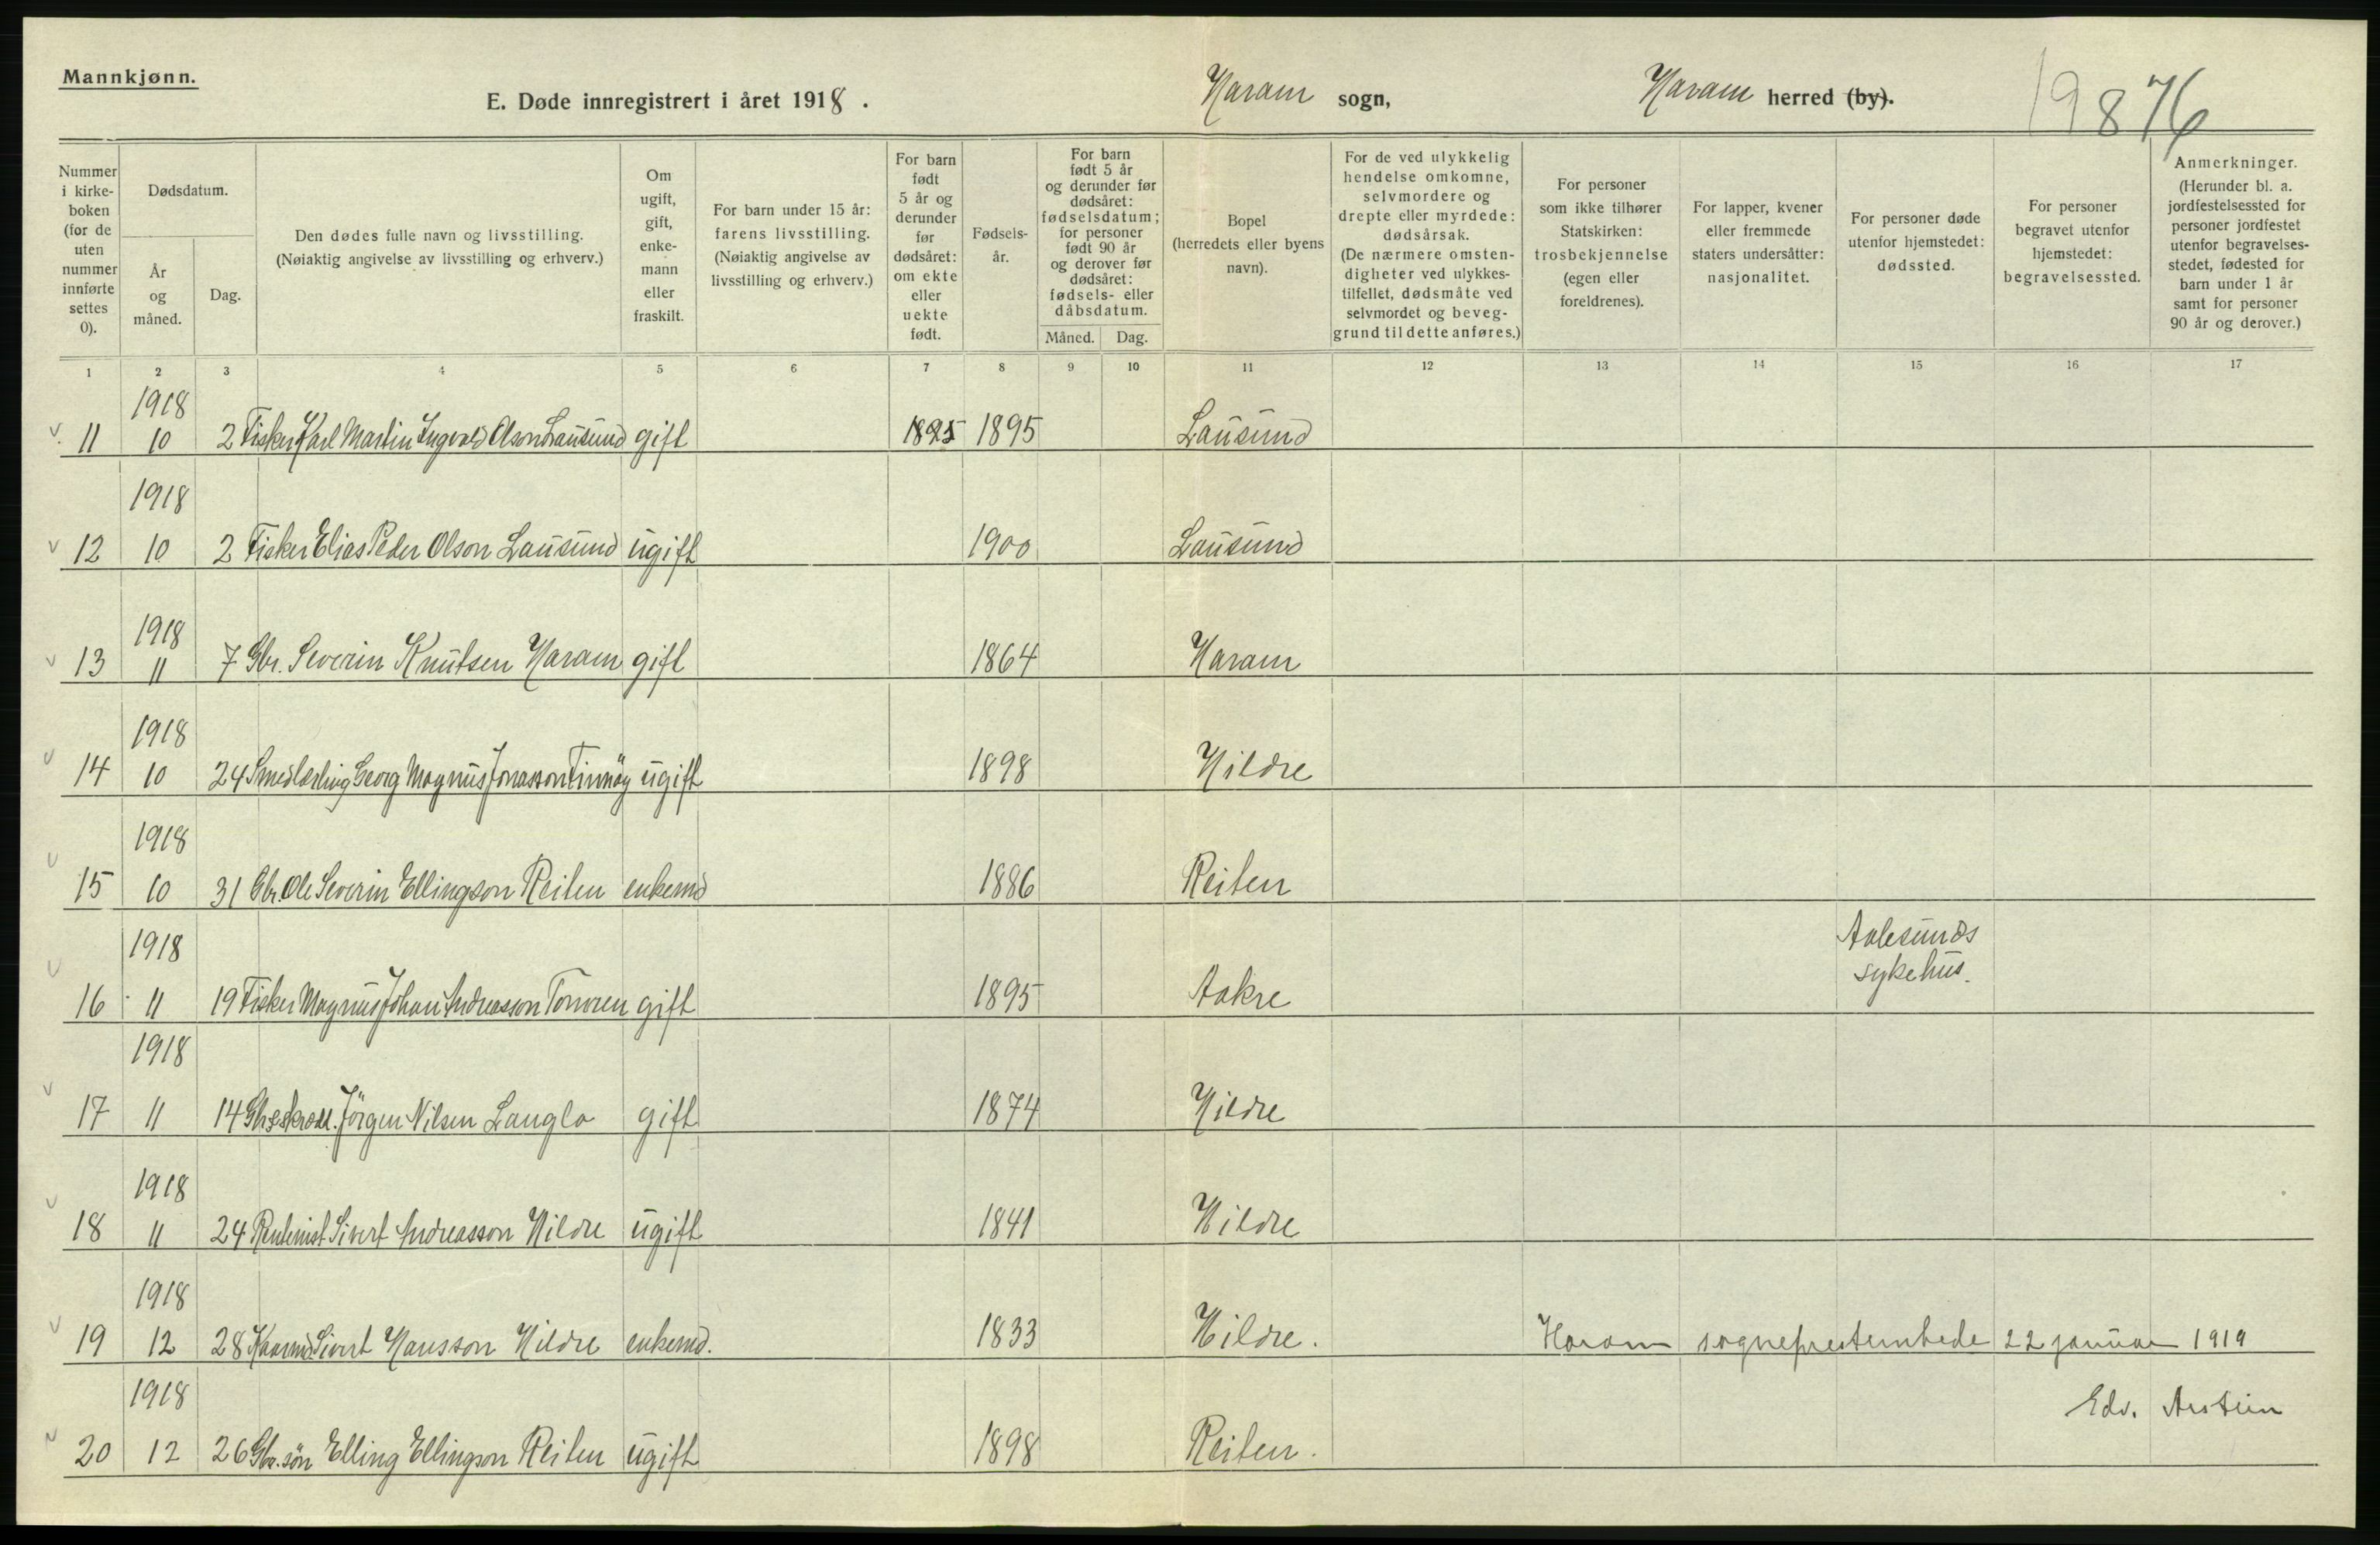 Mannkjønn.
E. Døde innregistrert i året 1918. Haram sogn, Haram herred (by). 19876
Nummer i kirke-boken (for de uten nummer innførte settes 0).
Dødsdatum.
År og måned.
Dag.
Den dødes fulle navn og livsstilling.
(Nøiaktig angivelse av livsstilling og erhverv.)
Om ugift, gift, enke-mann eller fraskilt.
For barn under 15 år: farens livsstilling.
(Nøiaktig angivelse av livsstilling og erhverv.)
For barn født 5 år og derunder før dødsåret: om ekte eller uekte født.
Fødsels-år.
For barn født 5 år og derunder før dødsåret: fødselsdatum; for personer født 90 år og derover før dødsåret: fødsels- eller dåbsdatum.
Måned. Dag.
Bopel (herredets eller byens navn).
For de ved ulykkelig hendelse omkomne, selvmordere og drepte eller myrdede: dødsårsak.
(De nærmere omsten-digheter ved ulykkes-tilfellet, dødsmåte ved selvmordet og beveg-grund til dette anføres.)
For personer som ikke tilhører Statskirken: trosbekjennelse (egen eller foreldrenes).
For lapper, kvener eller fremmede staters undersåtter: nasjonalitet.
For personer døde utenfor hjemstedet: dødssted.
For personer begravet utenfor hjemstedet: begravelsessted.
Anmerkninger.
(Herunder bl. a. jordfestelsessted for personer jordfestet utenfor begravelses-stedet, fødested for barn under 1 år samt for personer 90 år og derover.)
1 2 3 4 5 6 7 8 9 10 11 12 13 14 15 16 17
1918
11 10 2 Fisker Karl Martin Ingvald Olson Lausund gift 1895 1895 Lausund
1918
12 10 2 Fisker Elias Peder Olson Lausund ugift 1900 Lausund
1918
13 11 7 Gbr. Severin Knutsen Haram gift 1864 Haram
1918
14 10 24 Smedlærling Georg Magnus Jonasson Finnöy ugift 1898 Hildre
1918
15 10 31 Gbr. Ole Severin Ellingson Reiten enkemd 1886 Reiten
1918 Aalesunds
sykehus.
16 11 19 Fisker Magnus Johan Andreasson gift 1895 Aakre
1918
17 11 14 Jörgen Nilsen Langlo gift 1874 Hildre
1918
18 11 24 Rentenist Sivert Andreasson Hildre ugift 1841 Hildre
1918
19 12 28 Kaarmd Sivert Hansson Hildre enkemd. 1833 Hildre. Haram sogneprestembede 22 januar 1919
1918 Edv.
20 12 26 Gbr. sön Elling Ellingson Reiten ugift 1898 Reiten.